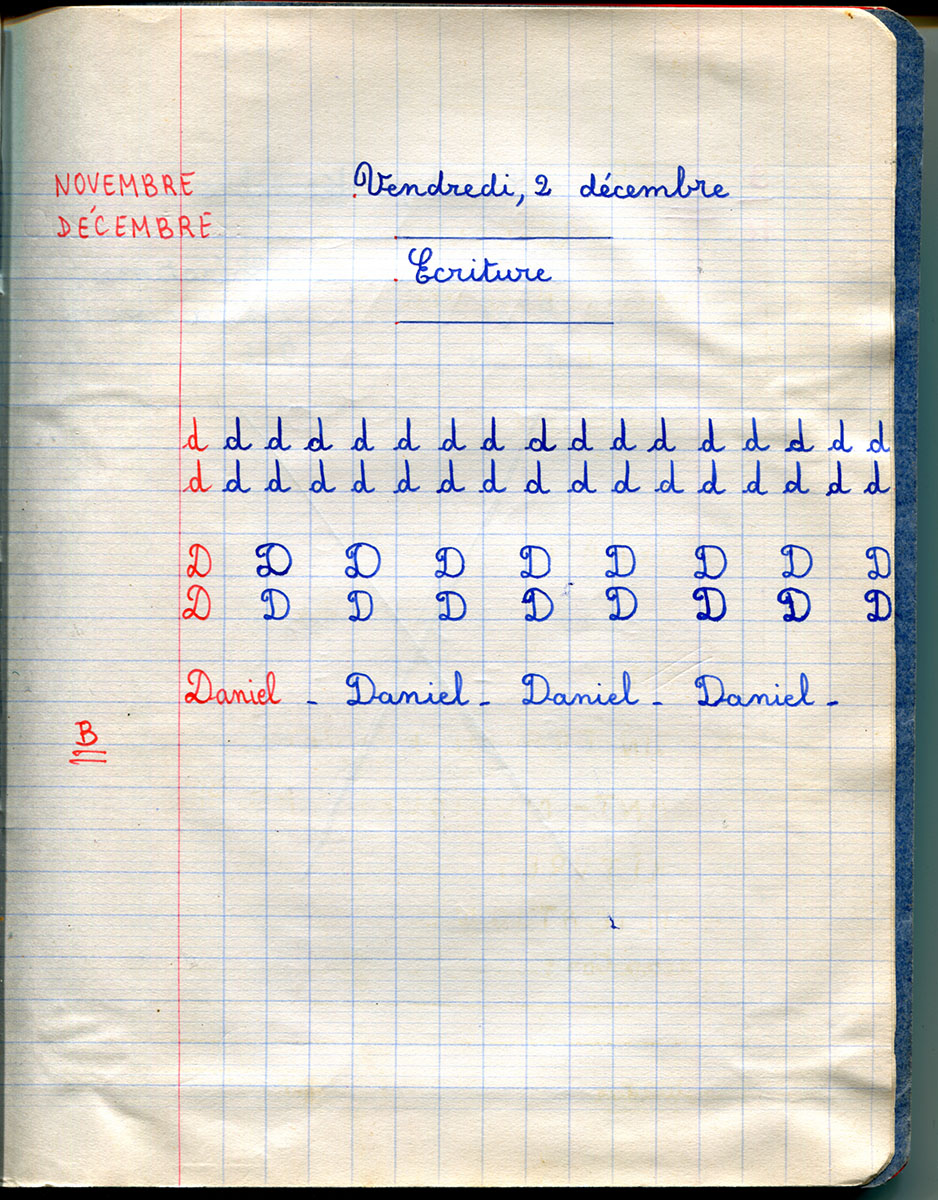 NOVEMBRE
DÉCEMBRE
Vendredi, 2 décembre
Ecriture
d d d d d d d d d d d d d d d d d
d d d d d d d d d d d d d d d d d
D D D D D D D D D
D D D D D D D D D
Daniel - Daniel - Daniel - Daniel -
B